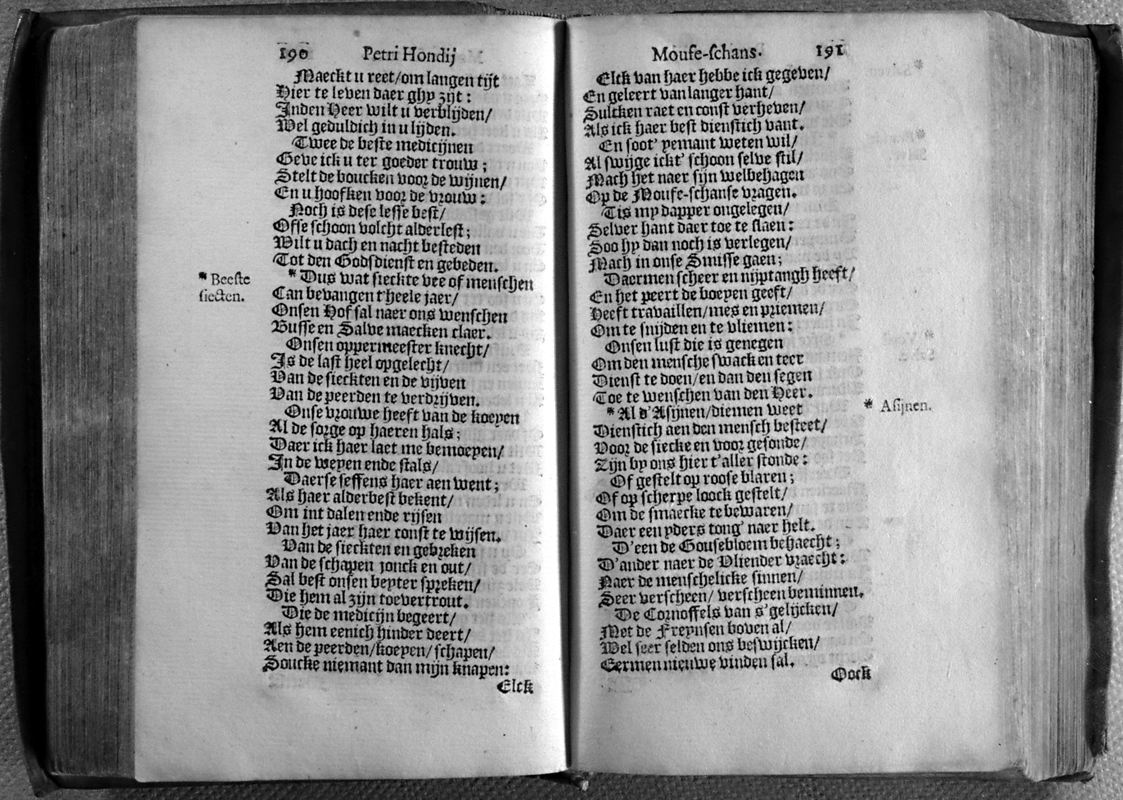 190 Petri Hondij
Maeckt u reet/om langen tijt
Hier te leven daer ghy zijt:
Inden Heer wilt u verblijden/
Wel geduldich in u lijden.
Twee de beste medicijnen
Geve ick u ter goeder trouw;
Stelt de boucken voor de wijnen/
En u hoofken voor de vrouw:
Noch is dese lesse best/
Offe schoon volcht alderlest;
Wilt u dach en nacht besteden
Tot den Godsdienst en gebeden.
* Beeste
siecten.
* Dus wat sieckte vee of menschen
Can bevangen t'heele jaer/
Onsen Hof sal naer ons wenschen
Busse en Salve maecken claer.
Onsen oppermeester knecht/
Is de last heel opgelecht/
Van de sieckten en de vijven
Van de peerden te verdrijven.
Onse vrouwe heeft van de koeyen
Al de sorge op haeren hals;
Daer ick haer laet me bemoeyen/
In de weyen ende stals/
Daerse seffens haer aen went;
Als haer alderbest bekent/
Om int dalen ende rijsen
Van het jaer haer const te wijsen.
Van de sieckten en gebreken
Van de schapen jonck en out/
Sal best onsen heyter spreken/
Die hem al zijn toevertrout.
Die de medicijn begeert/
Als hem eenich hinder deert/
Aen de peerden/koeyen/schapen/
Soucke niemant dan mijn knapen:
Elck
Moufe-schans. 191
Elck van haer hebbe ick gegeven/
En geleert van langer hant/
Sulcken raet en const verheven/
Als ick haer best dienstich vant.
En soot' yemant weten wil/
Al swijge ickt' schoon selve stil/
Mach het naer sijn welbehagen
Op de Moufe-schanse vragen.
Tis my dapper ongelegen/
Selver hant daer toe te slaen:
Soo hy dan noch is verlegen/
Mach in onse Smisse gaen;
Daermen scheer en nijptangh heeft/
En het peert de boeyen geeft/
Heeft travaillen/mes en priemen/
Om te snijden en te vliemen:
Onsen lust die is genegen
Om den mensche swack en teer
Dienst te doen/en dan den segen
Toe te wenschen van den Heer.
* Al d'Asijnen/diemen weet
* Asijnen.
Dienstich aen den mensch besteet/
Voor de siecke en voor gesonde/
Zijn by ons hier t'aller stonde:
Of gestelt op roose blaren;
Of op scherpe loock gestelt/
Om de smaecke te bewaren/
Daer een yders tong' naer helt.
D'een de Gousebloem behaecht;
D'ander naer de Vliender vraecht:
Naer de menschelicke sinnen/
Seer verscheen/ verscheen beminnen.
De Cornoffels van s'gelijcken/
Met de Freynsen boven al/
Wel seer selden ons beswijcken/
Eermen nieuwe vinden sal.
Oock